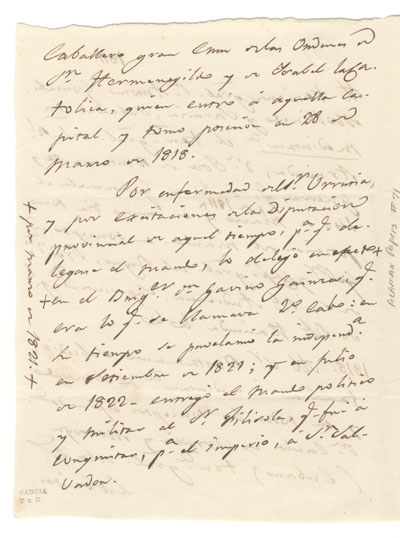 Caballero gran Cruz de las Ordenes de
Sn. Hermenegildo y de Ysabel la Ca-
tolica, quien entró á aquella Ca-
pital y tomo posesion en 28 de
marzo de 1818.
Por enfermedad del Sr. Urrutia,
y por excitaciones de la Diputacion
provincial de aquel tiempo, pa. q. de-
legase el mando, lo dejó en efecto +
+ en el Brigr. Dn. Gavino Gainza, q.
era lo q. se llamava 2o. Cabo: en
tiempo se proclamo la independa.
en Setiembre de 1821; y en Julio
de 1822 entregó el mando politico
y militar al Sr. Filisola, q. fué á
conquistar, pa. el imperio, á Sn. Sal-
vador.
+ por marzo de 1821. +
GARCIA
Alaman Papers #71